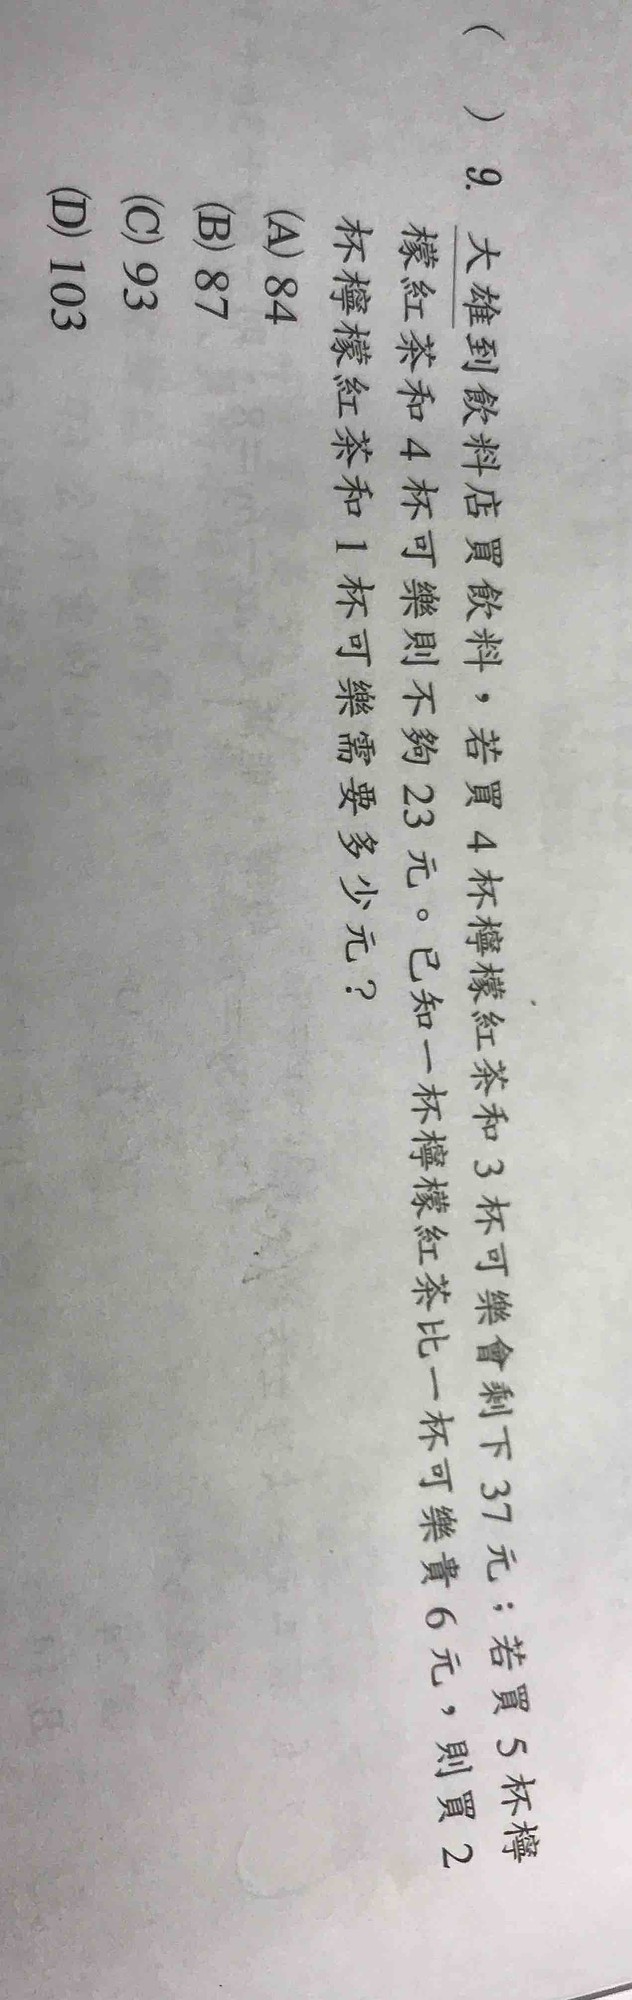 (　) 9. 大雄到飲料店買飲料，若買 4 杯檸檬紅茶和 3 杯可樂會剩下 37 元；若買 5 杯檸
檬紅茶和 4 杯可樂則不夠 23 元。已知一杯檸檬紅茶比一杯可樂貴 6 元，則買 2
杯檸檬紅茶和 1 杯可樂需要多少元？
(A) 84
(B) 87
(C) 93
(D) 103